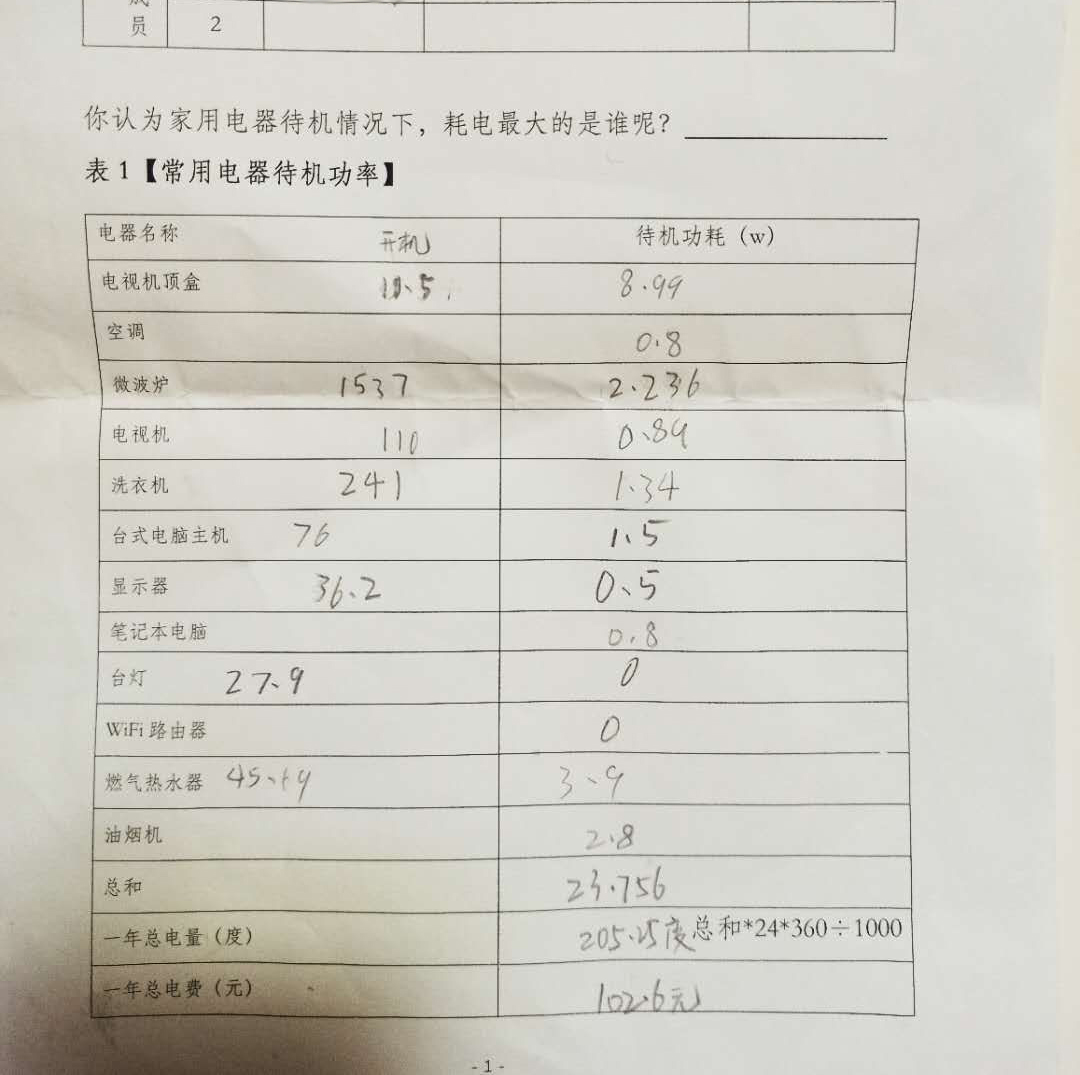 员 2
你认为家用电器待机情况下，耗电最大的是谁呢？
表 1【常用电器待机功率】
电器名称 开机 待机功耗（w）
电视机顶盒 8.99
空调 0.8
微波炉 1537 2.236
电视机 110 0.89
洗衣机 241 1.34
台式电脑主机 76 1.5
显示器 36.2 0.5
笔记本电脑 0.8
台灯 27.9 0
WiFi 路由器 0
燃气热水器 3.9
油烟机 2.8
总和 23.756
一年总电量（度） 205.25度 总和*24*360÷1000
一年总电费（元） 102.6元
- 1 -